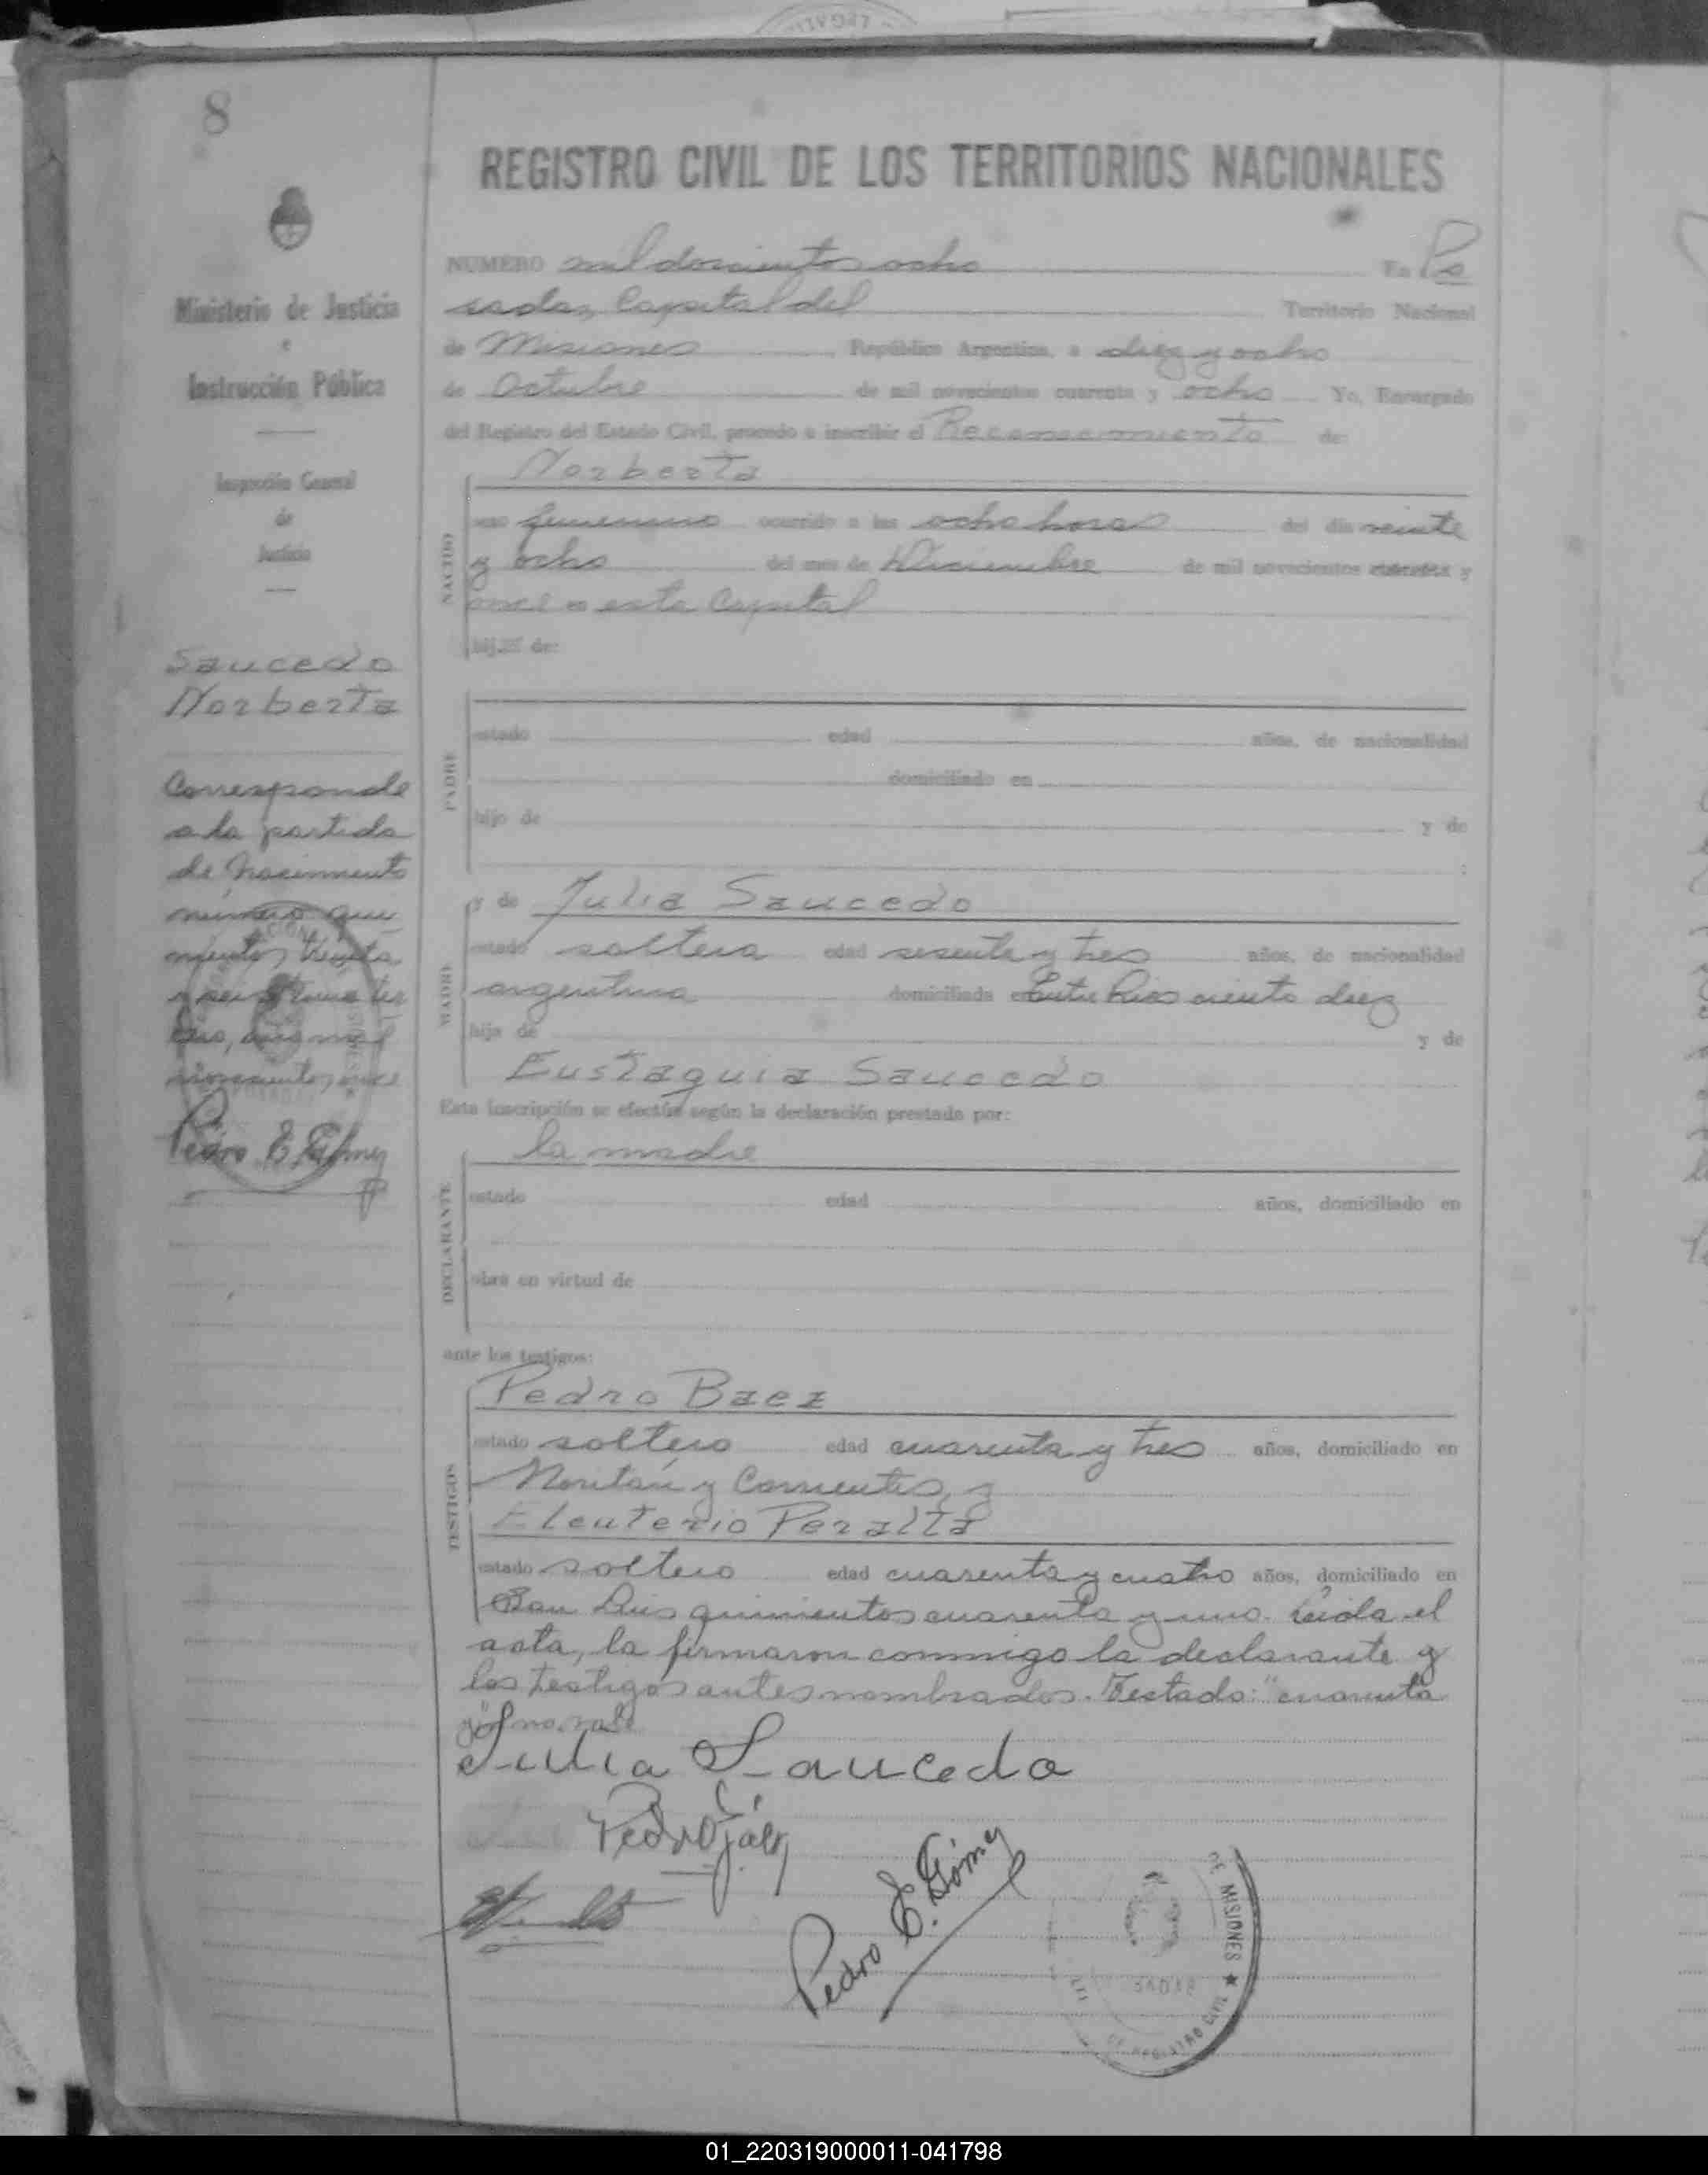 8
REGISTRO CIVIL DE LOS TERRITORIOS NACIONALES
NUMERO mil doscientos ocho En Po
sadas, Capital del Territorio Nacional
de Misiones República Argentina, a diez y ocho
de Octubre de mil novecientos cuarenta y ocho Yo, Encargado
del Registro del Estado Civil, procedo a inscribir el Reconocimiento de:
Ministerio de Justicia
e
Instrucción Pública
Inspección General
de
Justicia
Saucedo
Norberta
Corresponde
a la partida
de Nacimiento
número qui
nientos treinta
novecientos once
Pedro E. Gómez
NACIDO
Norberta
sexo femenino ocurrido a las ocho horas del día veinte
y ocho del mes de Diciembre de mil novecientos cuarenta y
once en esta Capital
hij de:
PADRE
estado edad años, de nacionalidad
domiciliado en
hijo de y de
:
MADRE
y de Julia Saucedo
estado soltera edad sesenta y tres años, de nacionalidad
argentina domiciliada en Entre Rios ciento diez
hija de y de
Eustaquia Saucedo
Esta inscripción se efectúa según la declaración prestada por:
DECLARANTE
la madre
estado edad años, domiciliado en
obra en virtud de
ante los testigos:
TESTIGOS
Pedro Baez
estado soltero edad cuarenta y tres años, domiciliado en
y Corrientes, y
Eleuterio Peralta
estado soltero edad cuarenta y cuatro años, domiciliado en
San Luis quinientos cuarenta y uno. Leida el
acta, la firmaron conmigo la declarante y
los testigos antes nombrados. Testado: "cuarenta
y" no vale
Julia Saucedo
Pedro Báez
Pedro E. Gómez
DE MISIONES ★
REGISTRO CIVIL
01_220319000011-041798